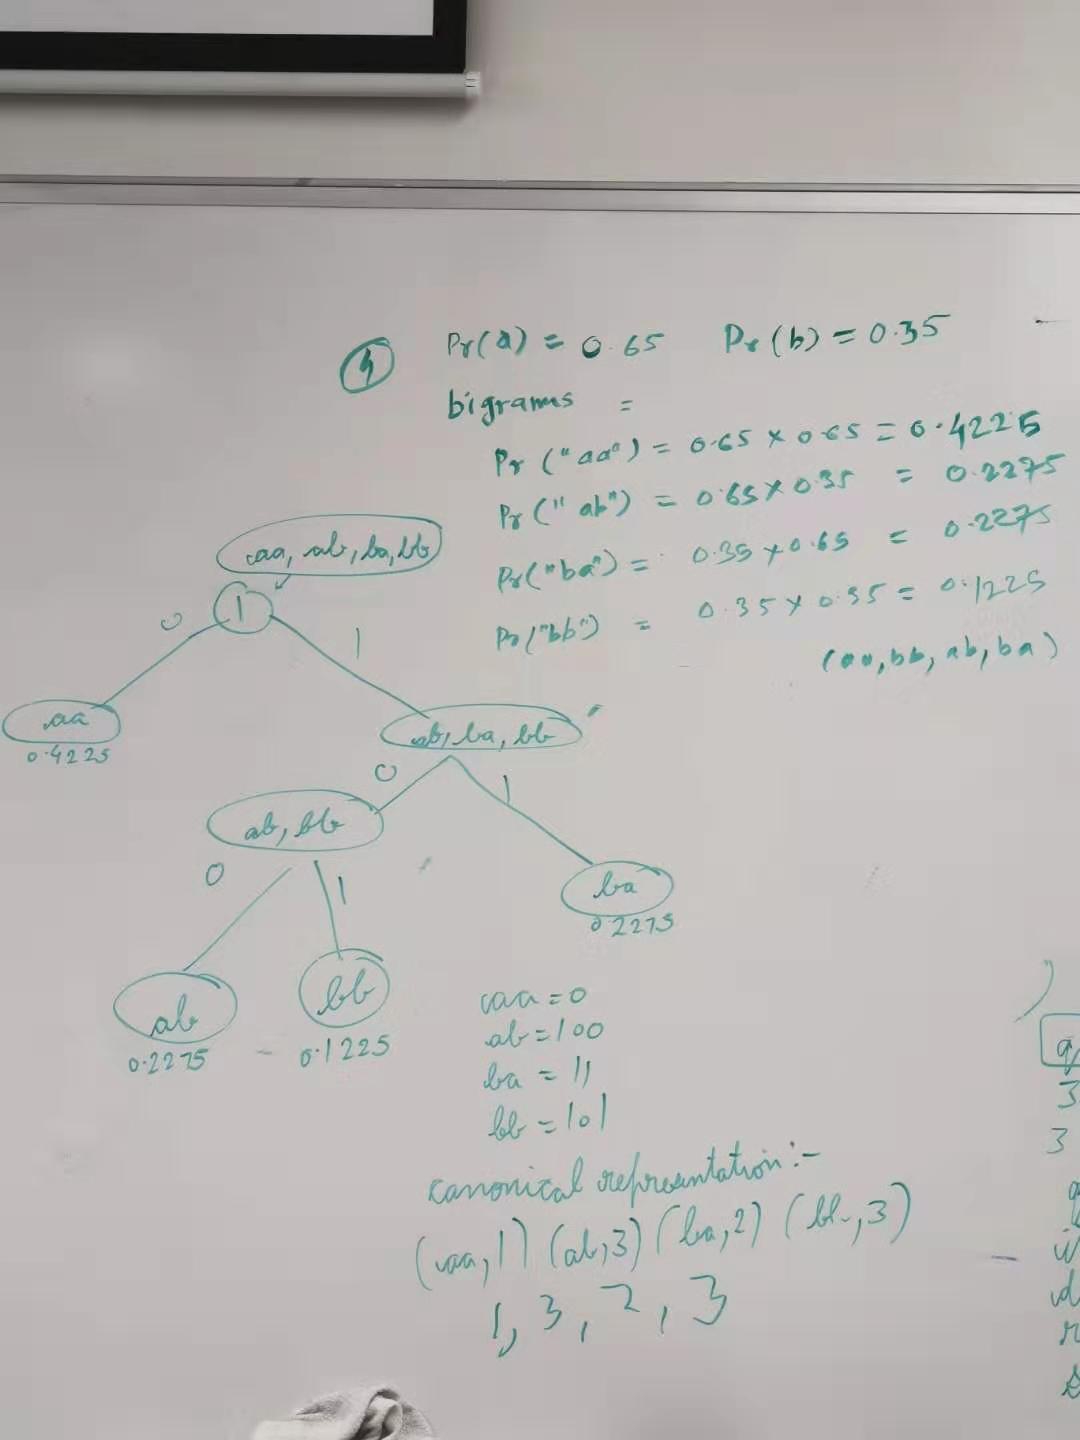 ④ Pr(a) = 0.65 Pr(b) = 0.35
bigrams =
Pr ("aa") = 0.65 × 0.65 = 0.4225
Pr ("ab") = 0.65 × 0.35 = 0.2275
Pr("ba") = 0.35 × 0.65 = 0.2275
Pr("bb") = 0.35 × 0.35 = 0.1225
(aa, bb, ab, ba)
aa, ab, ba, bb
1
0 1
aa
0.4225
ab, ba, bb
0 1
ab, bb
0 1
ba
0.2275
ab
0.2275
bb
0.1225
aa = 0
ab = 100
ba = 11
bb = 101
canonical representation :-
(aa, 1) (ab, 3) (ba, 2) (bb, 3)
1, 3, 2, 3
3
3